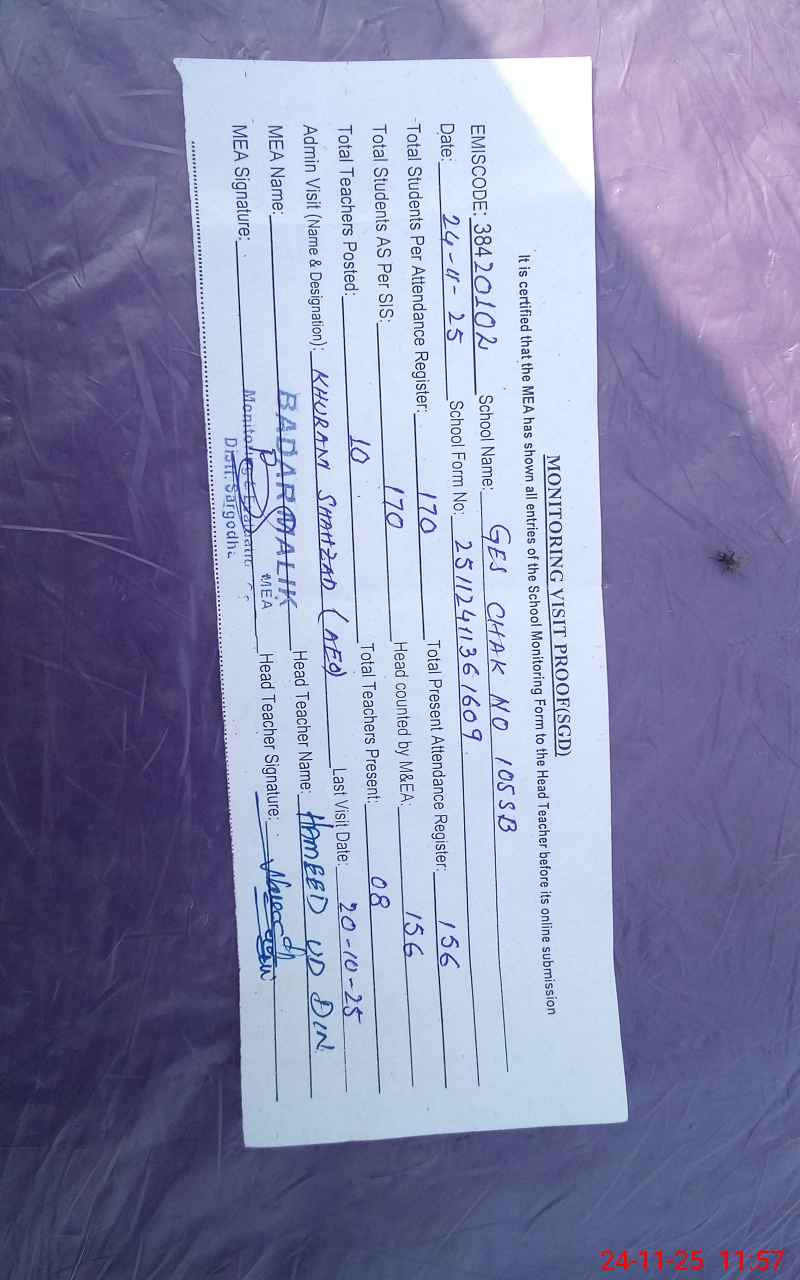 MONITORING VISIT PROOF(SGD)
It is certified that the MEA has shown all entries of the School Monitoring Form to the Head Teacher before its online submission
EMISCODE: 38420102 School Name: GES CHAK NO 105SB
Date: 24-11-25 School Form No: 2511241136 1609
Total Students Per Attendance Register: 170 Total Present Attendance Register: 156
Total Students AS Per SIS: 170 Head counted by M&EA: 156
Total Teachers Posted: 10 Total Teachers Present: 08
Admin Visit (Name & Designation): KHURAM SHAHZAD (AEO) Last Visit Date: 20-10-25
MEA Name: BADAR MALIK Head Teacher Name: HAMEED UD DIN
MEA Signature: MEA Head Teacher Signature:
Distt. Sargodha
24-11-25 11:57